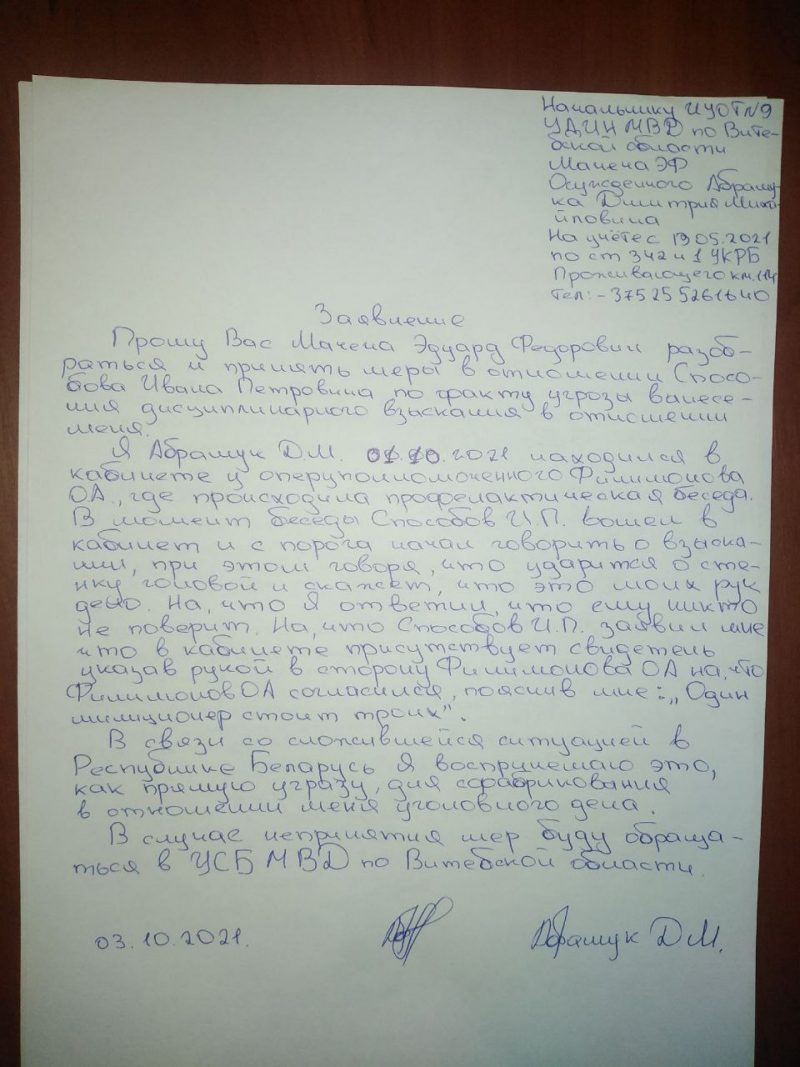 Начальнику ИУОТ№9
УДИН МВД по Вите-
бской области
Мачена ЭФ
Осужденного Абрашу-
ка Дмитрия Миха-
йловича
На учёте с 19.05.2021
по ст 342 ч 1 УКРБ
Проживающего км.114
тел: - 375255261640
Заявление
Прошу Вас Мачена Эдуард Федорович разоб-
раться и принять меры в отношении Спосо-
бова Ивана Петровича по факту угрозы вынесе-
ния дисциплинарного взыскания в отношении
меня.
Я Абрашук Д.М. 01.10.2021 находился в
кабинете у оперуполномоченного Филимонова
ОА., где происходила профелактическая беседа.
В момент беседы Способов И.П. вошел в
кабинет и с порога начал говорить о взыска-
нии, при этом говоря, что ударится о сте-
нку головой и скажет, что это моих рук
дело. На, что Я ответил, что ему никто
не поверит. На, что Способов И.П. заявил мне
что в кабинете присутствует свидетель
указав рукой в сторону Филимонова ОА на, что
Филимонов ОА согласился, пояснив мне: „Один
милиционер стоит троих".
В связи со сложившейся ситуацией в
Республике Беларусь Я воспринемаю это,
как прямую угразу, для сфабрикования
в отношении меня уголовного дела.
В случае непринятия мер буду обраща-
ться в УСБ МВД по Витебской области.
03.10.2021.
Абрашук Д.М.